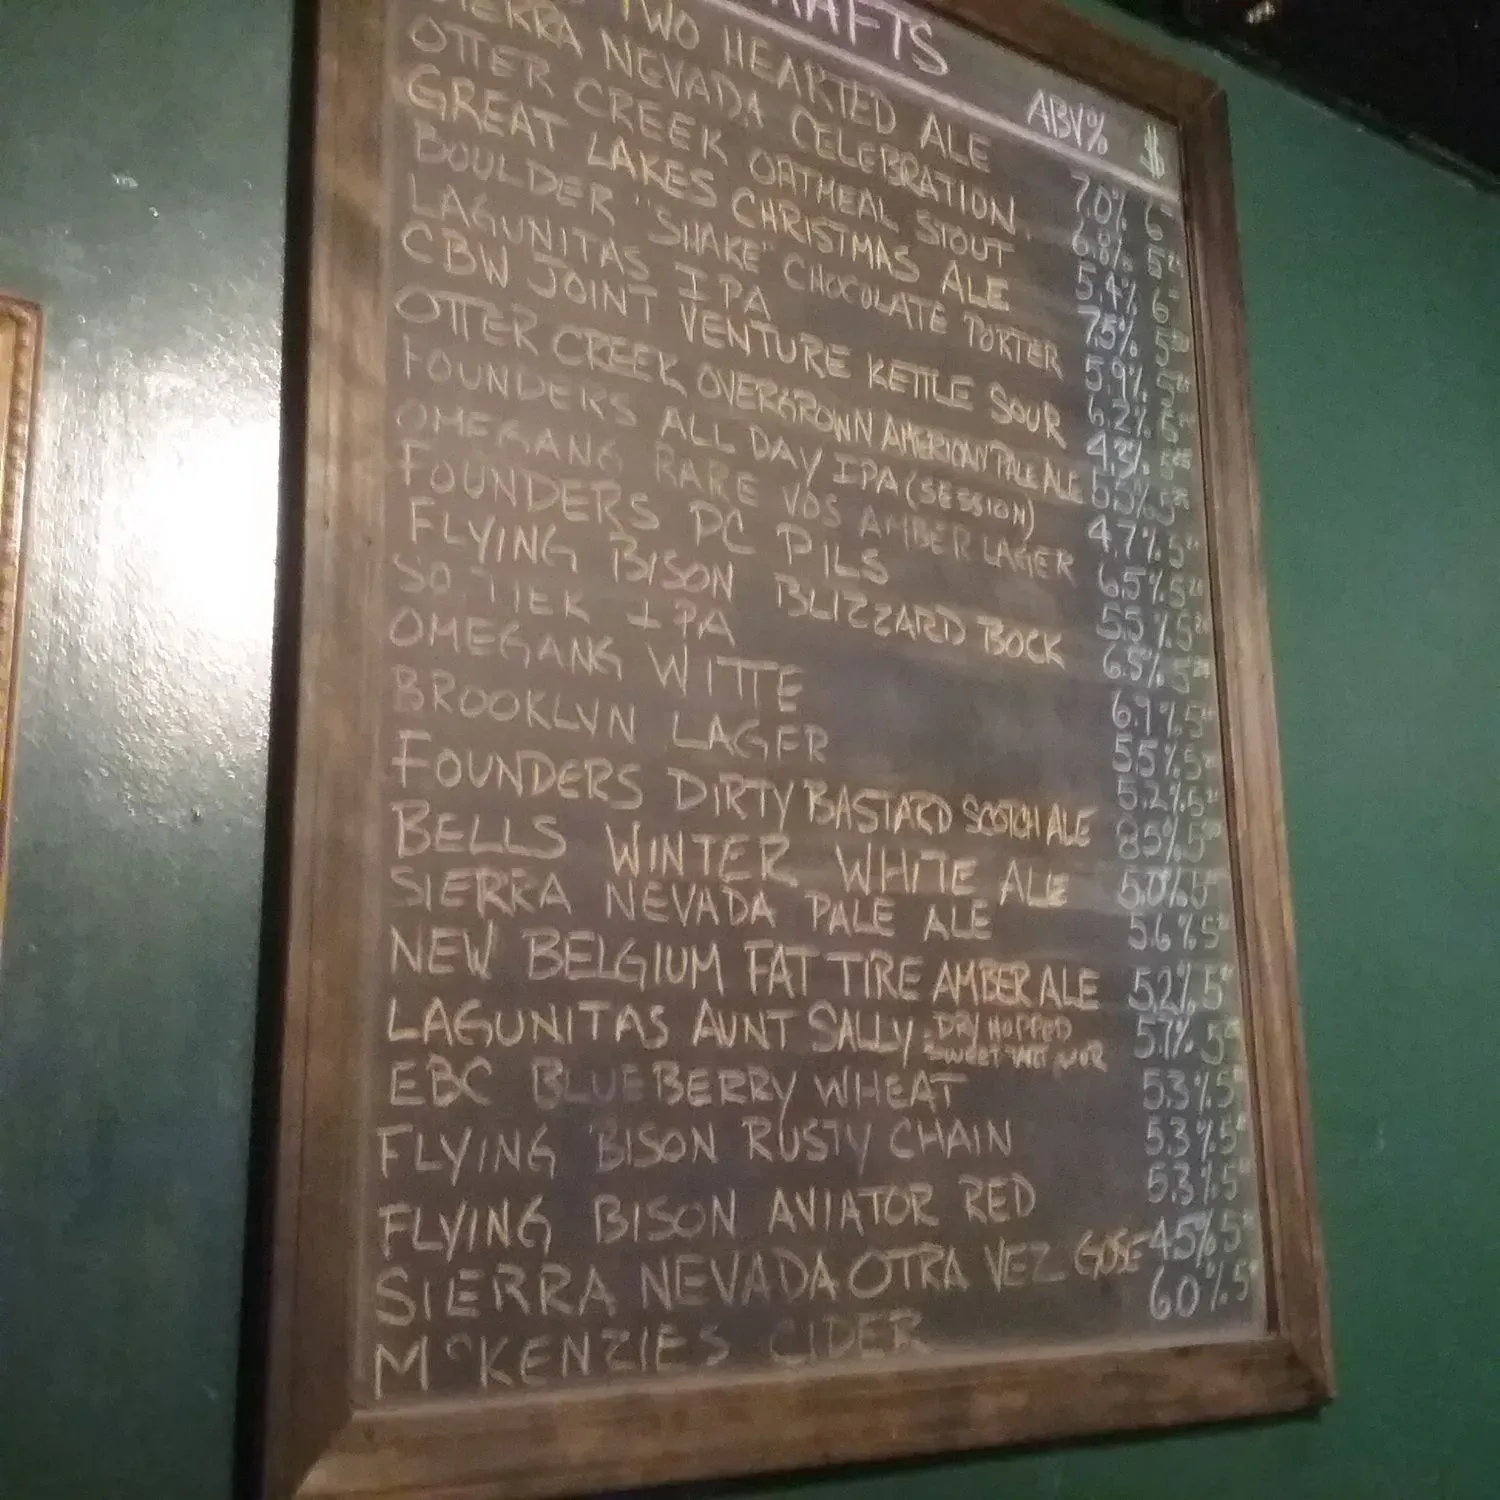 ABV% $
TWO HEARTED ALE 7.0% 6
SIERRA NEVADA CELEBRATION 6.8% 5
OTTER CREEK OATMEAL STOUT 5.4% 6
GREAT LAKES CHRISTMAS ALE 7.5% 5
BOULDER "SHAKE" CHOCOLATE PORTER 5.9% 5
LAGUNITAS IPA 6.2% 5
CBW JOINT VENTURE KETTLE SOUR 4.3% 5
OTTER CREEK OVERGROWN AMERICAN PALE ALE 5.5% 5
FOUNDERS ALL DAY IPA (SESSION) 4.7% 5
OMEGANG RARE VOS AMBER LAGER 6.5% 5
FOUNDERS PC PILS 5.5% 5
FLYING BISON BLIZZARD BOCK 6.5% 5
SO TIER IPA 6.9% 5
OMEGANG WITTE 5.5% 5
BROOKLYN LAGER 5.2% 5
FOUNDERS DIRTY BASTARD SCOTCH ALE 8.5% 5
BELLS WINTER WHITE ALE 5.0% 5
SIERRA NEVADA PALE ALE 5.6% 5
NEW BELGIUM FAT TIRE AMBER ALE 5.2% 5
LAGUNITAS AUNT SALLY - DRY HOPPED SWEET TART 5.7% 5
EBC BLUEBERRY WHEAT 5.3% 5
FLYING BISON RUSTY CHAIN 5.3% 5
FLYING BISON AVIATOR RED 5.3% 5
SIERRA NEVADA OTRA VEZ GOSE 4.5% 5
McKENZIES CIDER 6.0% 5